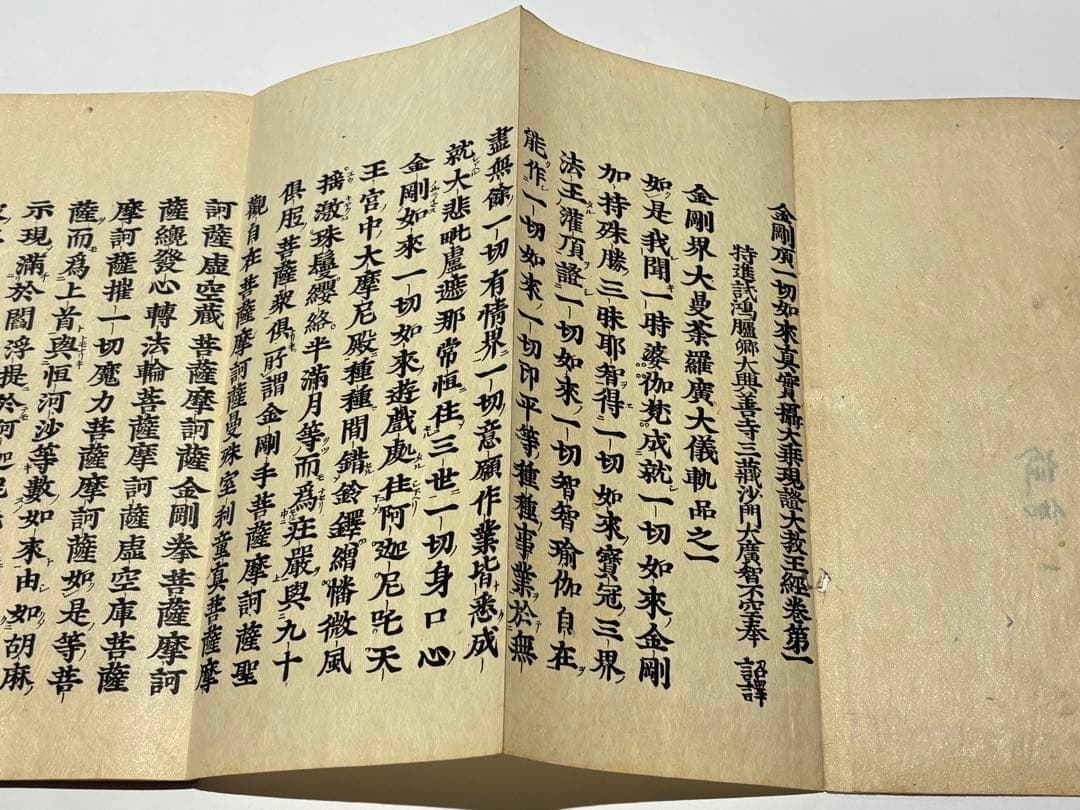 金剛頂一切如來真實攝大乘現證大教王經卷第一
特進試鴻臚卿大興善寺三藏沙門大廣智不空奉 詔譯
金剛界大曼荼羅廣大儀軌品之一
如是我聞一時婆伽梵成就一切如來金剛
加持殊勝三昧耶智得一切如來寶冠三界
法王灌頂證一切如來一切智智瑜伽自在
能作一切如來一切印平等種種事業於無
盡無餘一切有情界一切意願作業皆悉成
就大悲毗盧遮那常恒住三世一切身口心
金剛如來一切如來遊戲處住阿迦尼吒天
王宮中大摩尼殿種種間錯鈴鐸繒幡微風
搖激珠鬘纓絡半滿月等而爲莊嚴與九十
俱胝菩薩衆俱所謂金剛手菩薩摩訶薩聖
觀自在菩薩摩訶薩曼殊室利童真菩薩摩
訶薩虛空藏菩薩摩訶薩金剛拳菩薩摩訶
薩纔發心轉法輪菩薩摩訶薩虛空庫菩薩
摩訶薩摧一切魔力菩薩摩訶薩如是等菩
薩而爲上首與恒河沙等數如來由如胡麻
示現滿於閻浮提於阿迦尼